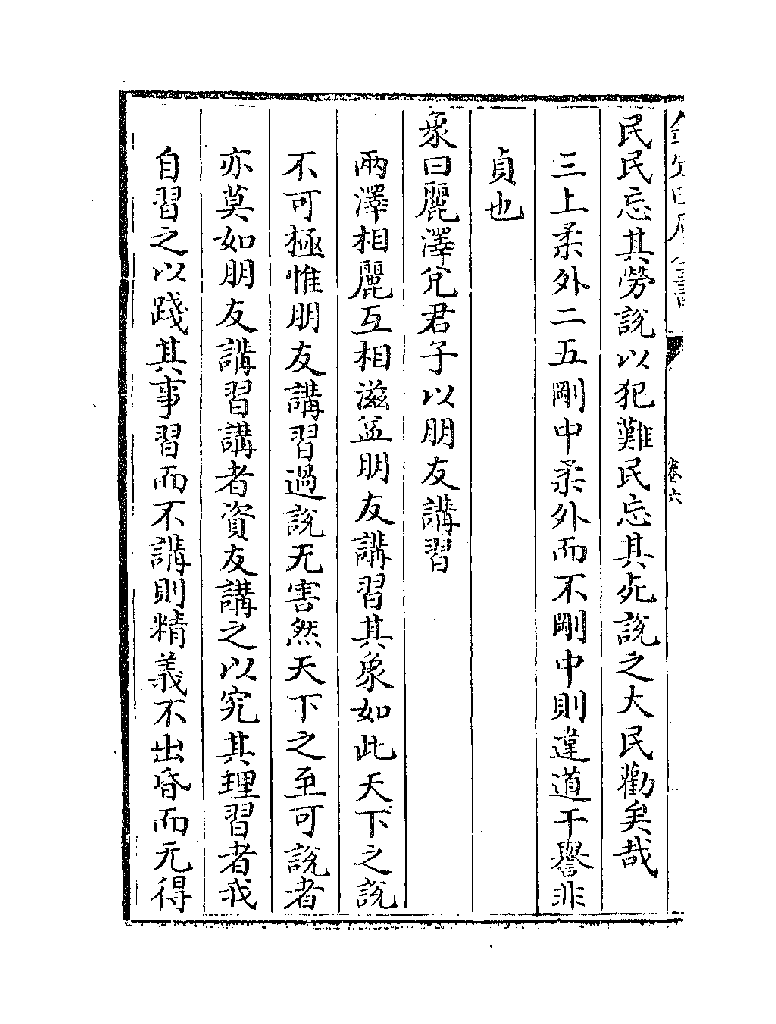 民民忘其勞說以犯難民忘其死說之大民勸矣哉
三上柔外二五剛中柔外而不剛中則違道干譽非
貞也
象曰麗澤兊君子以朋友講習
兩澤相麗互相滋益朋友講習其象如此天下之說
不可極惟朋友講習過說无害然天下之至可說者
亦莫如朋友講習講者資友講之以究其理習者我
自習之以踐其事習而不講則精義不出昏而无得
卷六